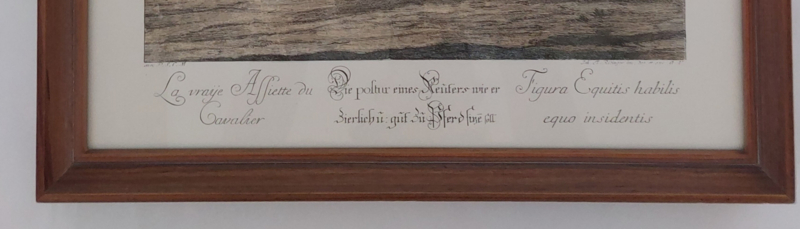 La vraye Assiette du
Cavalier
Die postur eines Reüters wie er
Zierlich ũ: gůt zů Pferd sitzē soll
Figura Equitis habilis
equo insidentis